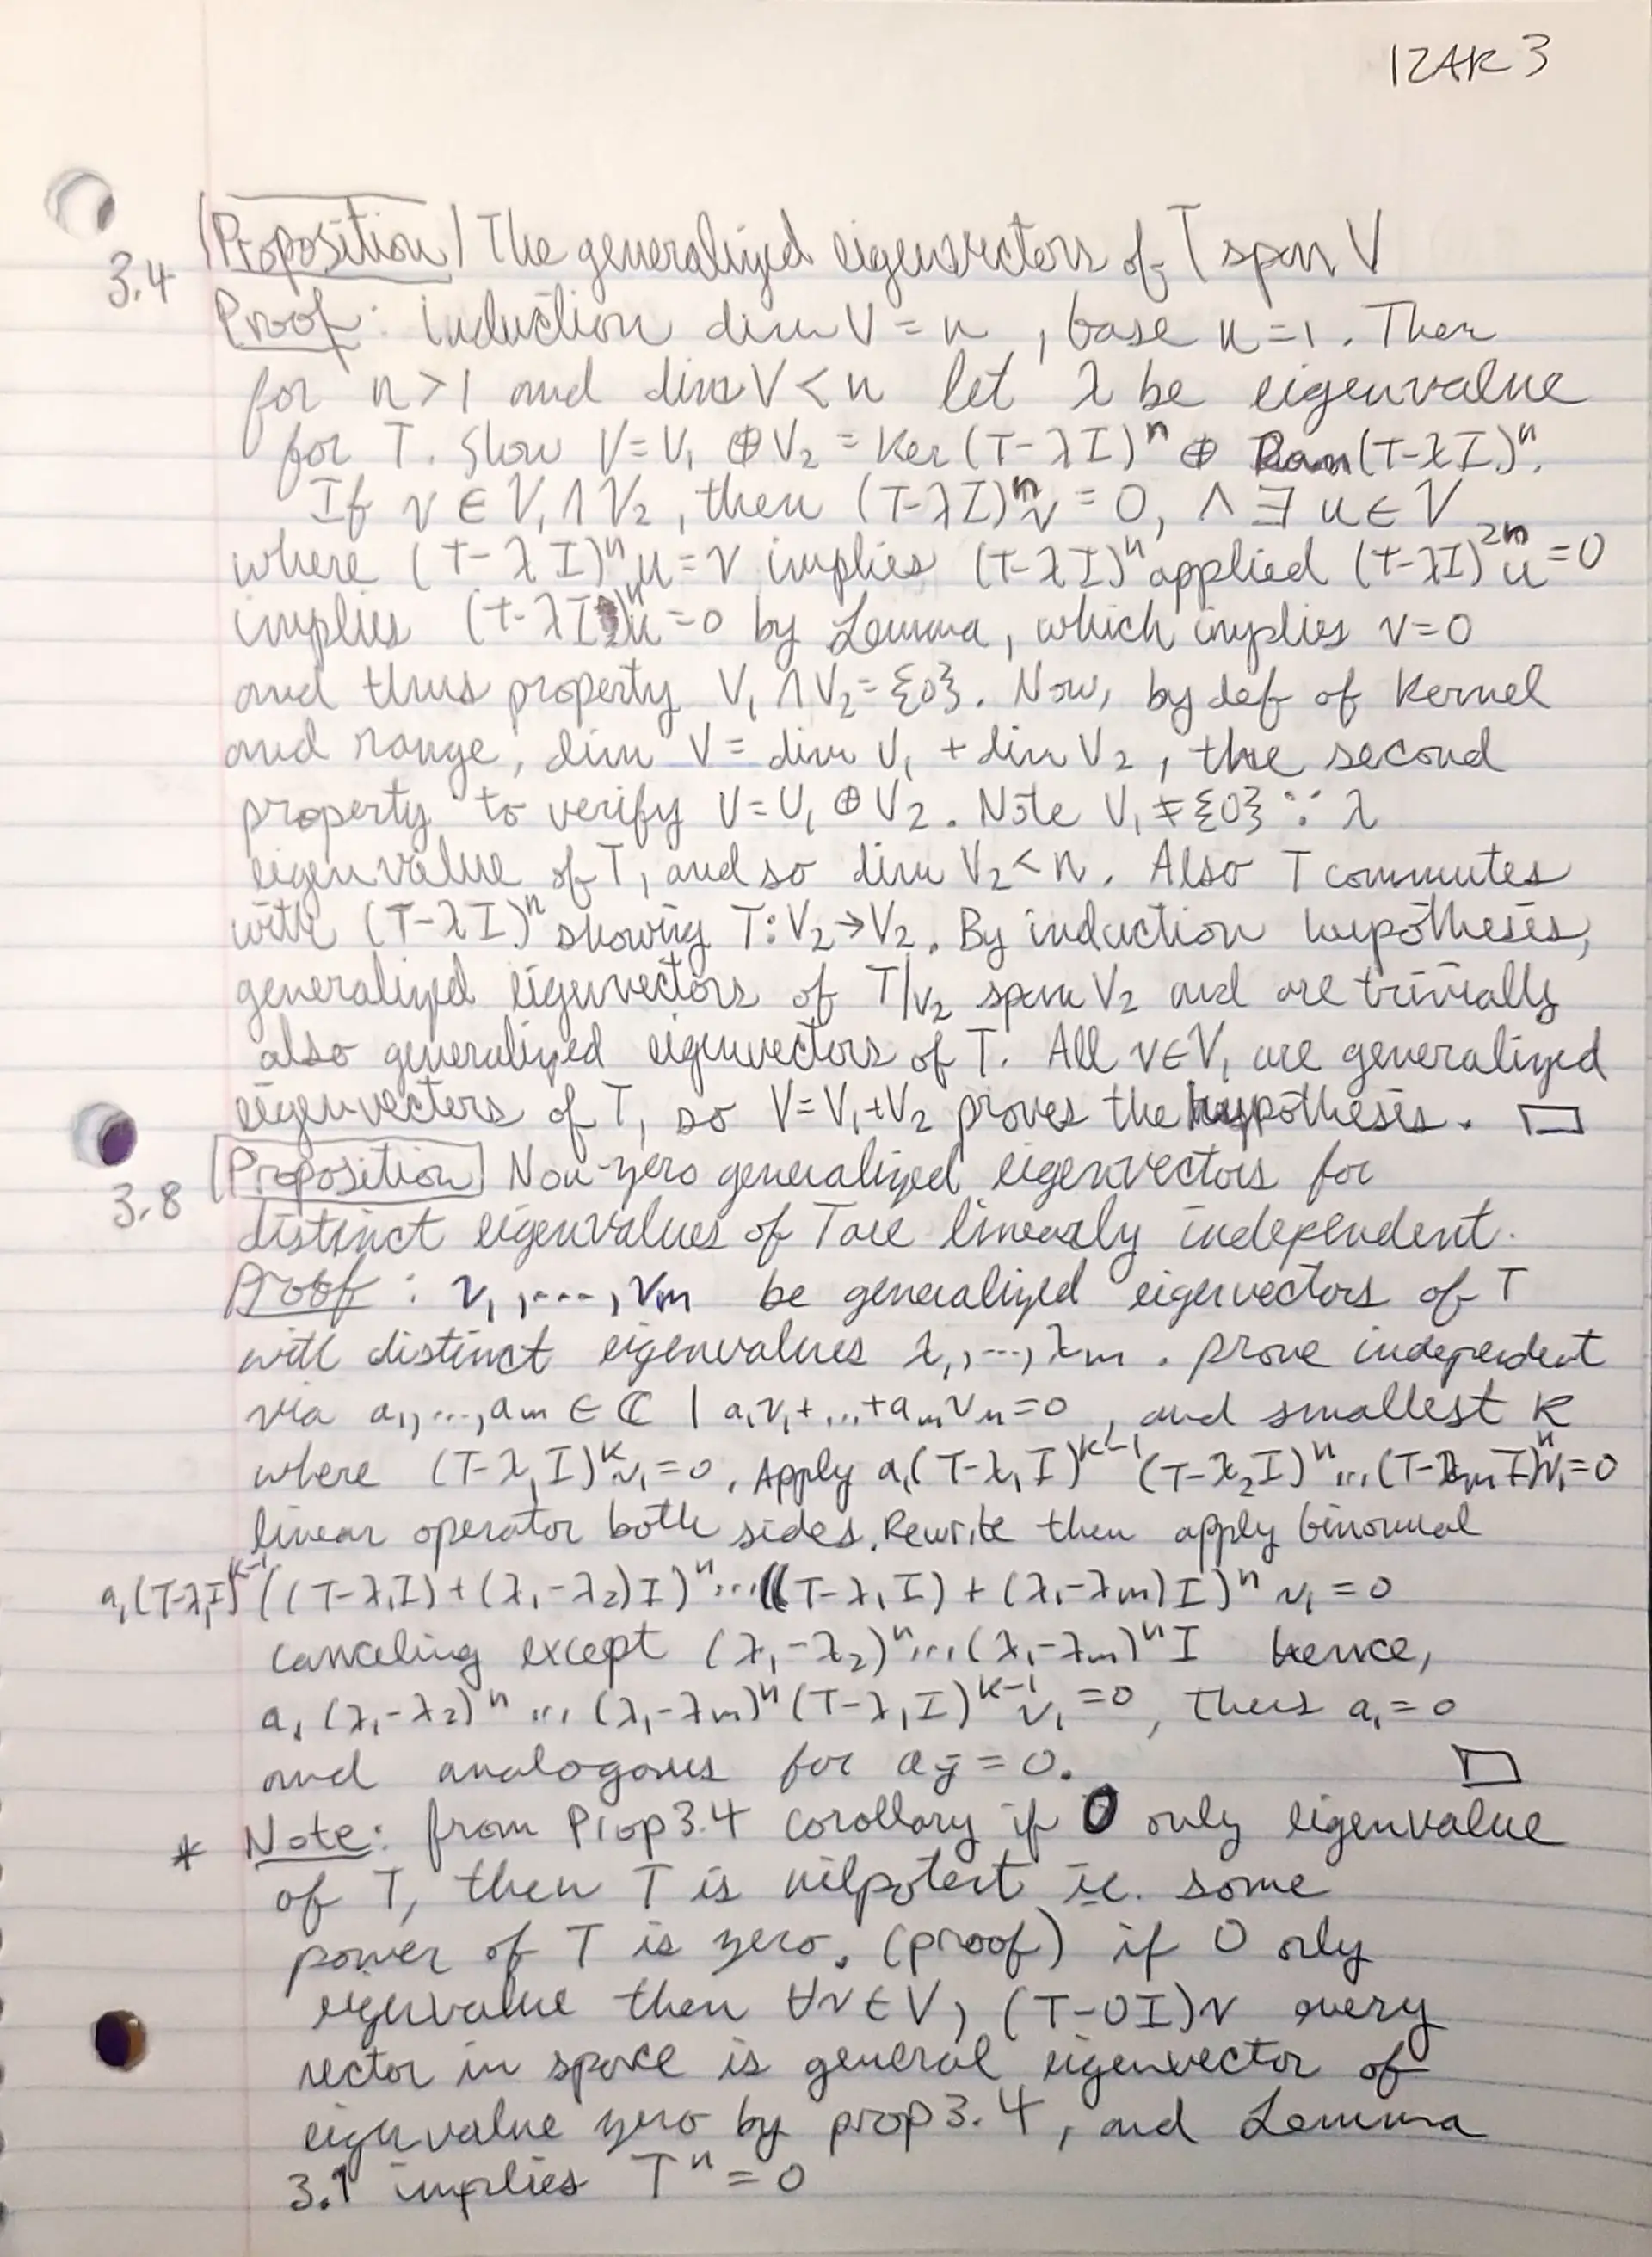 IZAK 3
3.4 Proposition The generalized eigenvectors of T span V
Proof: induction dim V = n, base n=1. Then
for n>1 and dim V < n let λ be eigenvalue
for T. Show V=V₁ ⊕ V₂ = Ker(T-λI)ⁿ ⊕ Ran(T-λI)ⁿ.
If v ∈ V₁ ∩ V₂, then (T-λI)ⁿv = 0, ∧ ∃ u ∈ V
where (T-λI)ⁿu = v implies (T-λI)ⁿ applied (T-λI)²ⁿu = 0
implies (T-λI)ⁿu = 0 by Lemma, which implies v=0
and thus property V₁ ∩ V₂ = {0}. Now, by def of Kernel
and range, dim V = dim V₁ + dim V₂, the second
property to verify V = V₁ ⊕ V₂. Note V₁ ≠ {0} ∵ λ
eigenvalue of T, and so dim V₂ < n. Also T commutes
with (T-λI)ⁿ showing T: V₂→V₂. By induction hypothesis,
generalized eigenvectors of T|v₂ span V₂ and are trivially
also generalized eigenvectors of T. All v∈V₁ are generalized
eigenvectors of T, so V=V₁+V₂ proves the hypothesis. □
3.8 Proposition Non-zero generalized eigenvectors for
distinct eigenvalues of T are linearly independent.
Proof: v₁,...,vₘ be generalized eigenvectors of T
with distinct eigenvalues λ₁,...,λₘ. prove independent
via a₁,...,aₘ ∈ ℂ | a₁v₁+...+aₘvₘ=0, and smallest k
where (T-λ₁I)ᵏv₁=0. Apply a₁(T-λ₁I)ᵏ⁻¹(T-λ₂I)ⁿ...(T-λₘI)ⁿv₁=0
linear operator both sides. Rewrite then apply binomial
a₁(T-λ₁I)ᵏ⁻¹((T-λ₁I)+(λ₁-λ₂)I)ⁿ...((T-λ₁I)+(λ₁-λₘ)I)ⁿ v₁ = 0
canceling except (λ₁-λ₂)ⁿ...(λ₁-λₘ)ⁿI hence,
a₁(λ₁-λ₂)ⁿ...(λ₁-λₘ)ⁿ(T-λ₁I)ᵏ⁻¹v₁=0, thus a₁=0
and analogous for aⱼ=0. □
* Note: from Prop 3.4 corollary if 0 only eigenvalue
of T, then T is nilpotent ie. some
power of T is zero. (proof) if 0 only
eigenvalue then ∀v∈V, (T-0I)v every
vector in space is general eigenvector of
eigenvalue zero by prop 3.4, and Lemma
3.1 implies Tⁿ=0